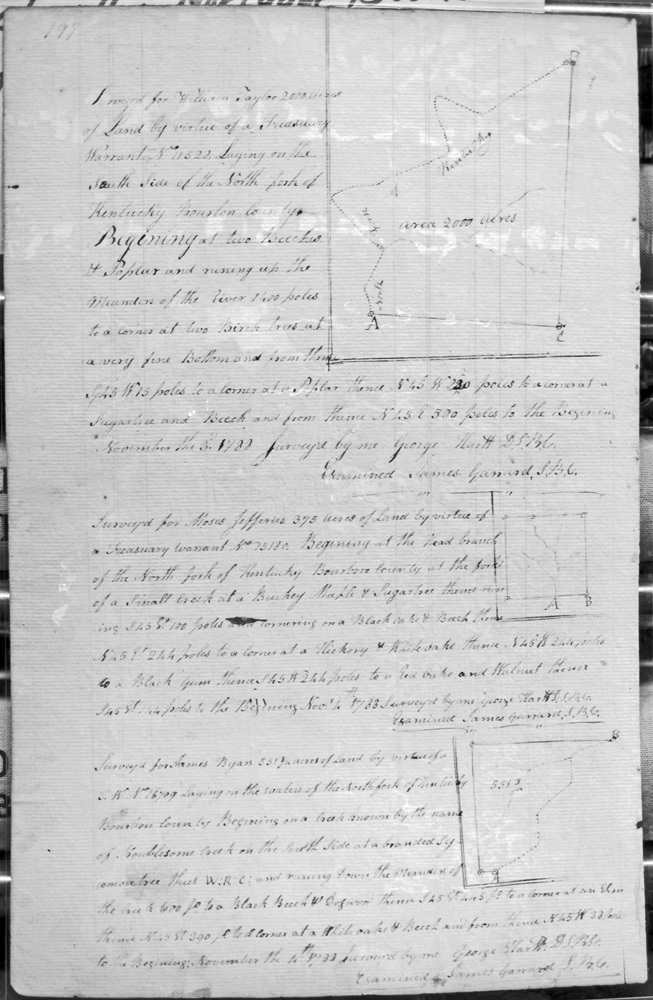 197
Surveyd for William Taylor 2000 acres
of Land by virtue of a Treasuary
Warrant No 11522 Laying on the
South Side of the North fork of
Kentucky Bourbon County
Begining at two Beeches
& Poplar and runing up the
Meanders of the River 1400 poles
to a corner at two Birch trees at
a very fine Bottom and from thence
S45 W 15 poles to a corner at a Poplar thence N45 W poles to a corner at a
Sugartree and Beech and from thence N45 E 520 poles to the Begining
November the 3 1783 Surveyd by me George Hartt D.S.B.C.
Examined James Garrard, S.B.C.
North
fork
Kentucky
area 2000 acres
A
B
C
Surveyd for Moses Jefferies 375 acres of Land by virtue of
a Treasuary warrant No 15180 Begining at the head branch
of the North fork of Kentucky Bourbon County at the fork
of a Small Creek at a Buckey Maple & Sugartree thence run
ing S45 E 100 poles cornering on a Black oake & Beach thence
N45 E 244 poles to a corner at a Hickory & White oake thence N45 W 244 poles
to a Black Gum thence S45 W 244 poles to a Red oake and Walnut thence
S45 E 144 poles to the Begining Novr 4th 1783 Surveyd by me George Hartt D.S.B.C.
Examined James Garrard, S.B.C.
A
B
Surveyd for James Byan 551 3/4 acres of Land by virtue of a
T. W. No 16709 Laying on the waters of the North fork of Kentucky
Bourbon County Begining on a Creek known by the name
of Troublesome Creek on the South Side at a branded Sy-
camore tree thus W.R.C: and runing down the Meanders of
the Creek 600 po to a Black Beech & Dogwood thence S45 W 445 po to a corner at an Elm
thence N45 W 390 po to a corner at a White oake & Beech and from thence N45 W 33 poles
to the Begining: November the 10th Surveyd by me George Hartt. D.S.B.C.
Examined James Garrard S.B.C.
551 3/4
A
B